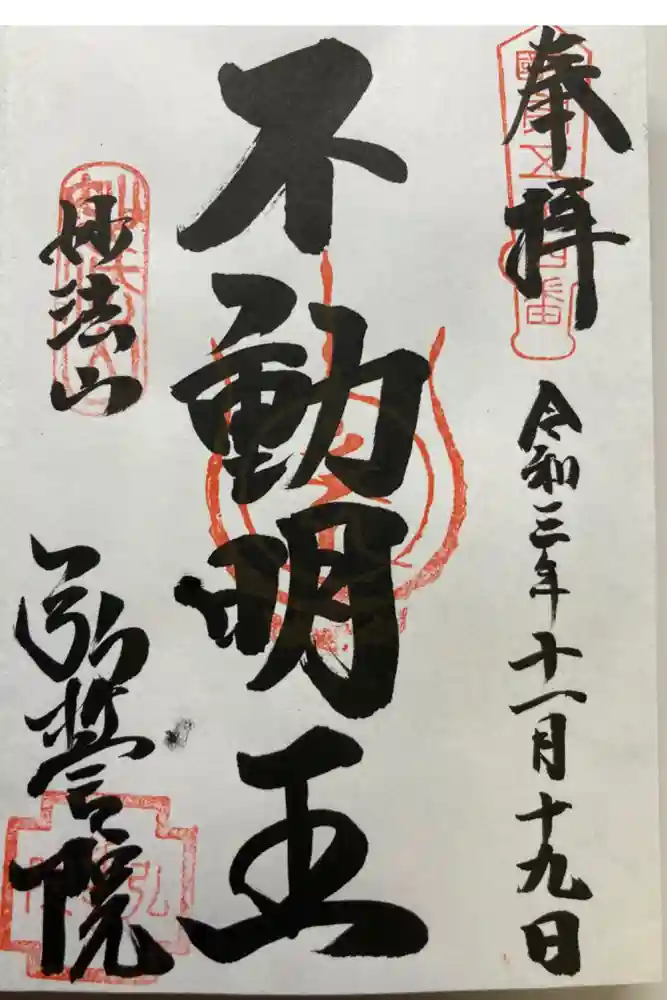 奉拝
令和三年十一月十九日
不動明王
妙法山
弘誓院